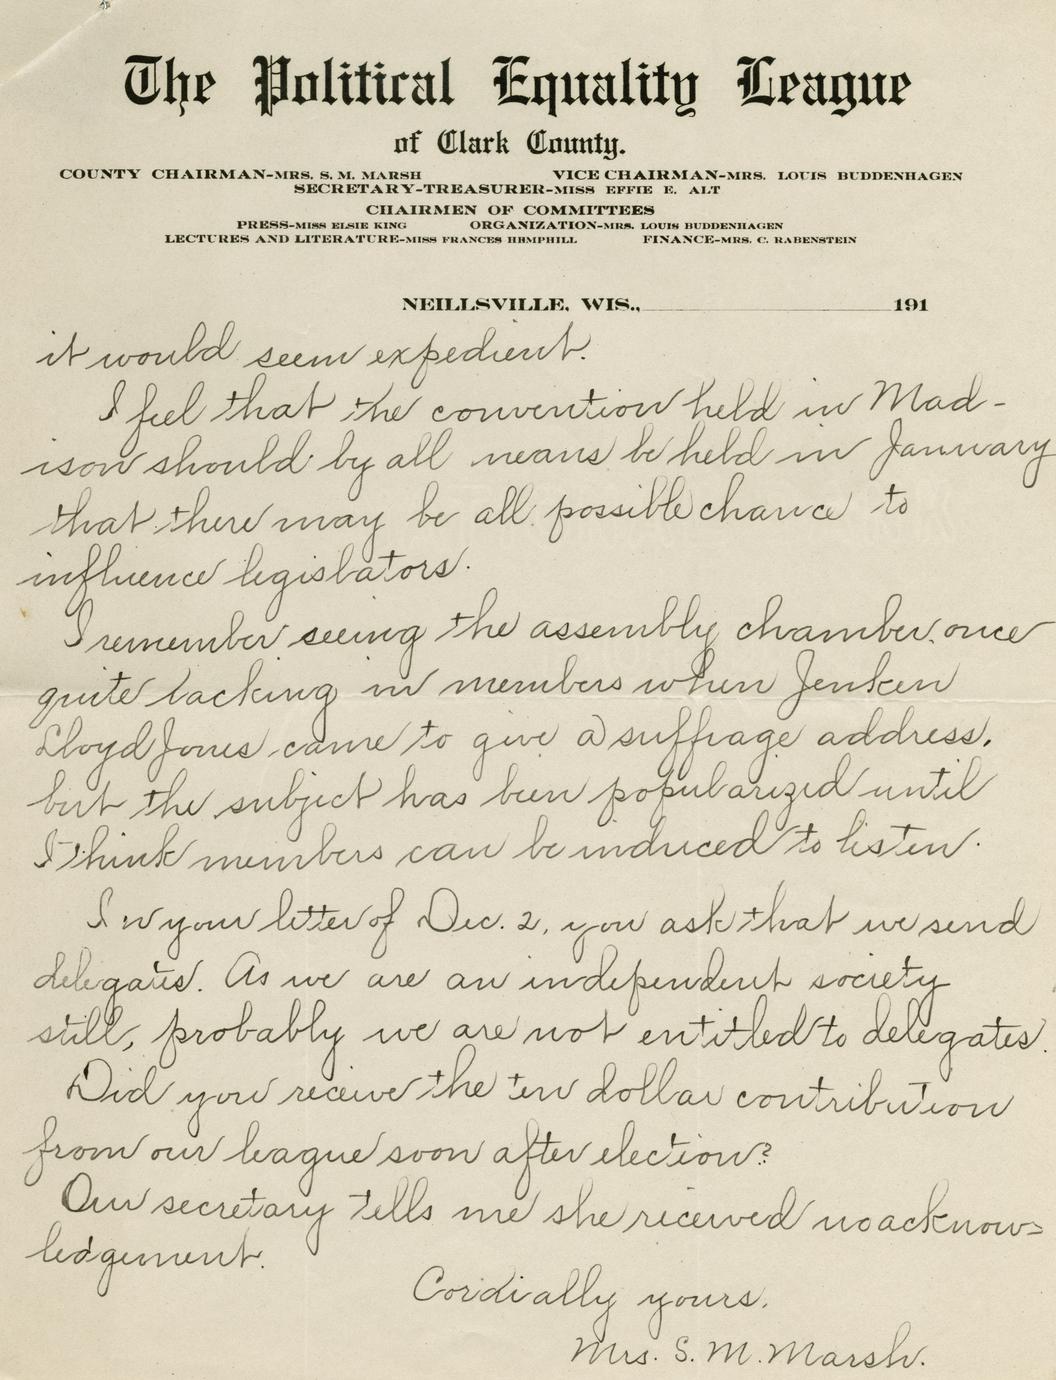 The Political Equality League
of Clark County.
COUNTY CHAIRMAN-MRS. S. M. MARSH VICE CHAIRMAN-MRS. LOUIS BUDDENHAGEN
SECRETARY-TREASURER-MISS EFFIE E. ALT
CHAIRMEN OF COMMITTEES
PRESS-MISS ELSIE KING ORGANIZATION-MRS. LOUIS BUDDENHAGEN
LECTURES AND LITERATURE-MISS FRANCES HHMPHILL FINANCE-MRS. C. RABENSTEIN
NEILLSVILLE, WIS., 191
it would seem expedient.
I feel that the convention held in Mad-
ison should by all means be held in January
that there may be all possible chance to
influence legislators.
I remember seeing the assembly chamber once
quite lacking in members when Jenken
Lloyd Jones came to give a suffrage address,
but the subject has been popularized until
I think members can be induced to listen.
In your letter of Dec. 2, you ask that we send
delegates. As we are an independent society
still, probably we are not entitled to delegates.
Did you receive the ten dollar contribution
from our league soon after election?
Our secretary tells me she received no acknow=
ledgement.
Cordially yours,
Mrs. S. M. Marsh.